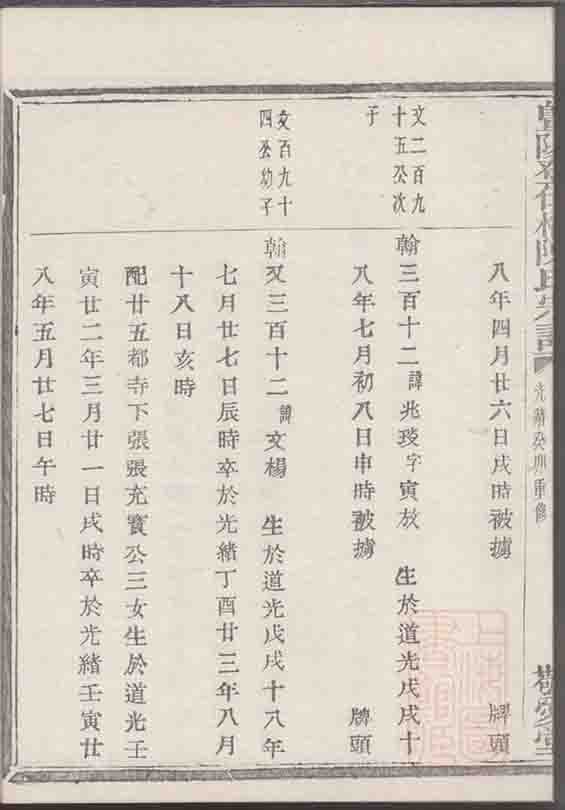 光緒癸卯重修
八年四月廿六日戌時被擄
牌頭
文二百九
十五公次
子
翰三百十二諱兆琰字寅放 生於道光戊戌十
八年七月初八日申時被擄
牌頭
文百九十
四公幼子
翰又三百十二諱文楊 生於道光戊戌十八年
七月廿七日辰時卒於光緒丁酉廿三年八月
十八日亥時
配廿五都寺下張張充寳公三女生於道光壬
寅廿二年三月廿一日戌時卒於光緒壬寅廿
八年五月廿七日午時